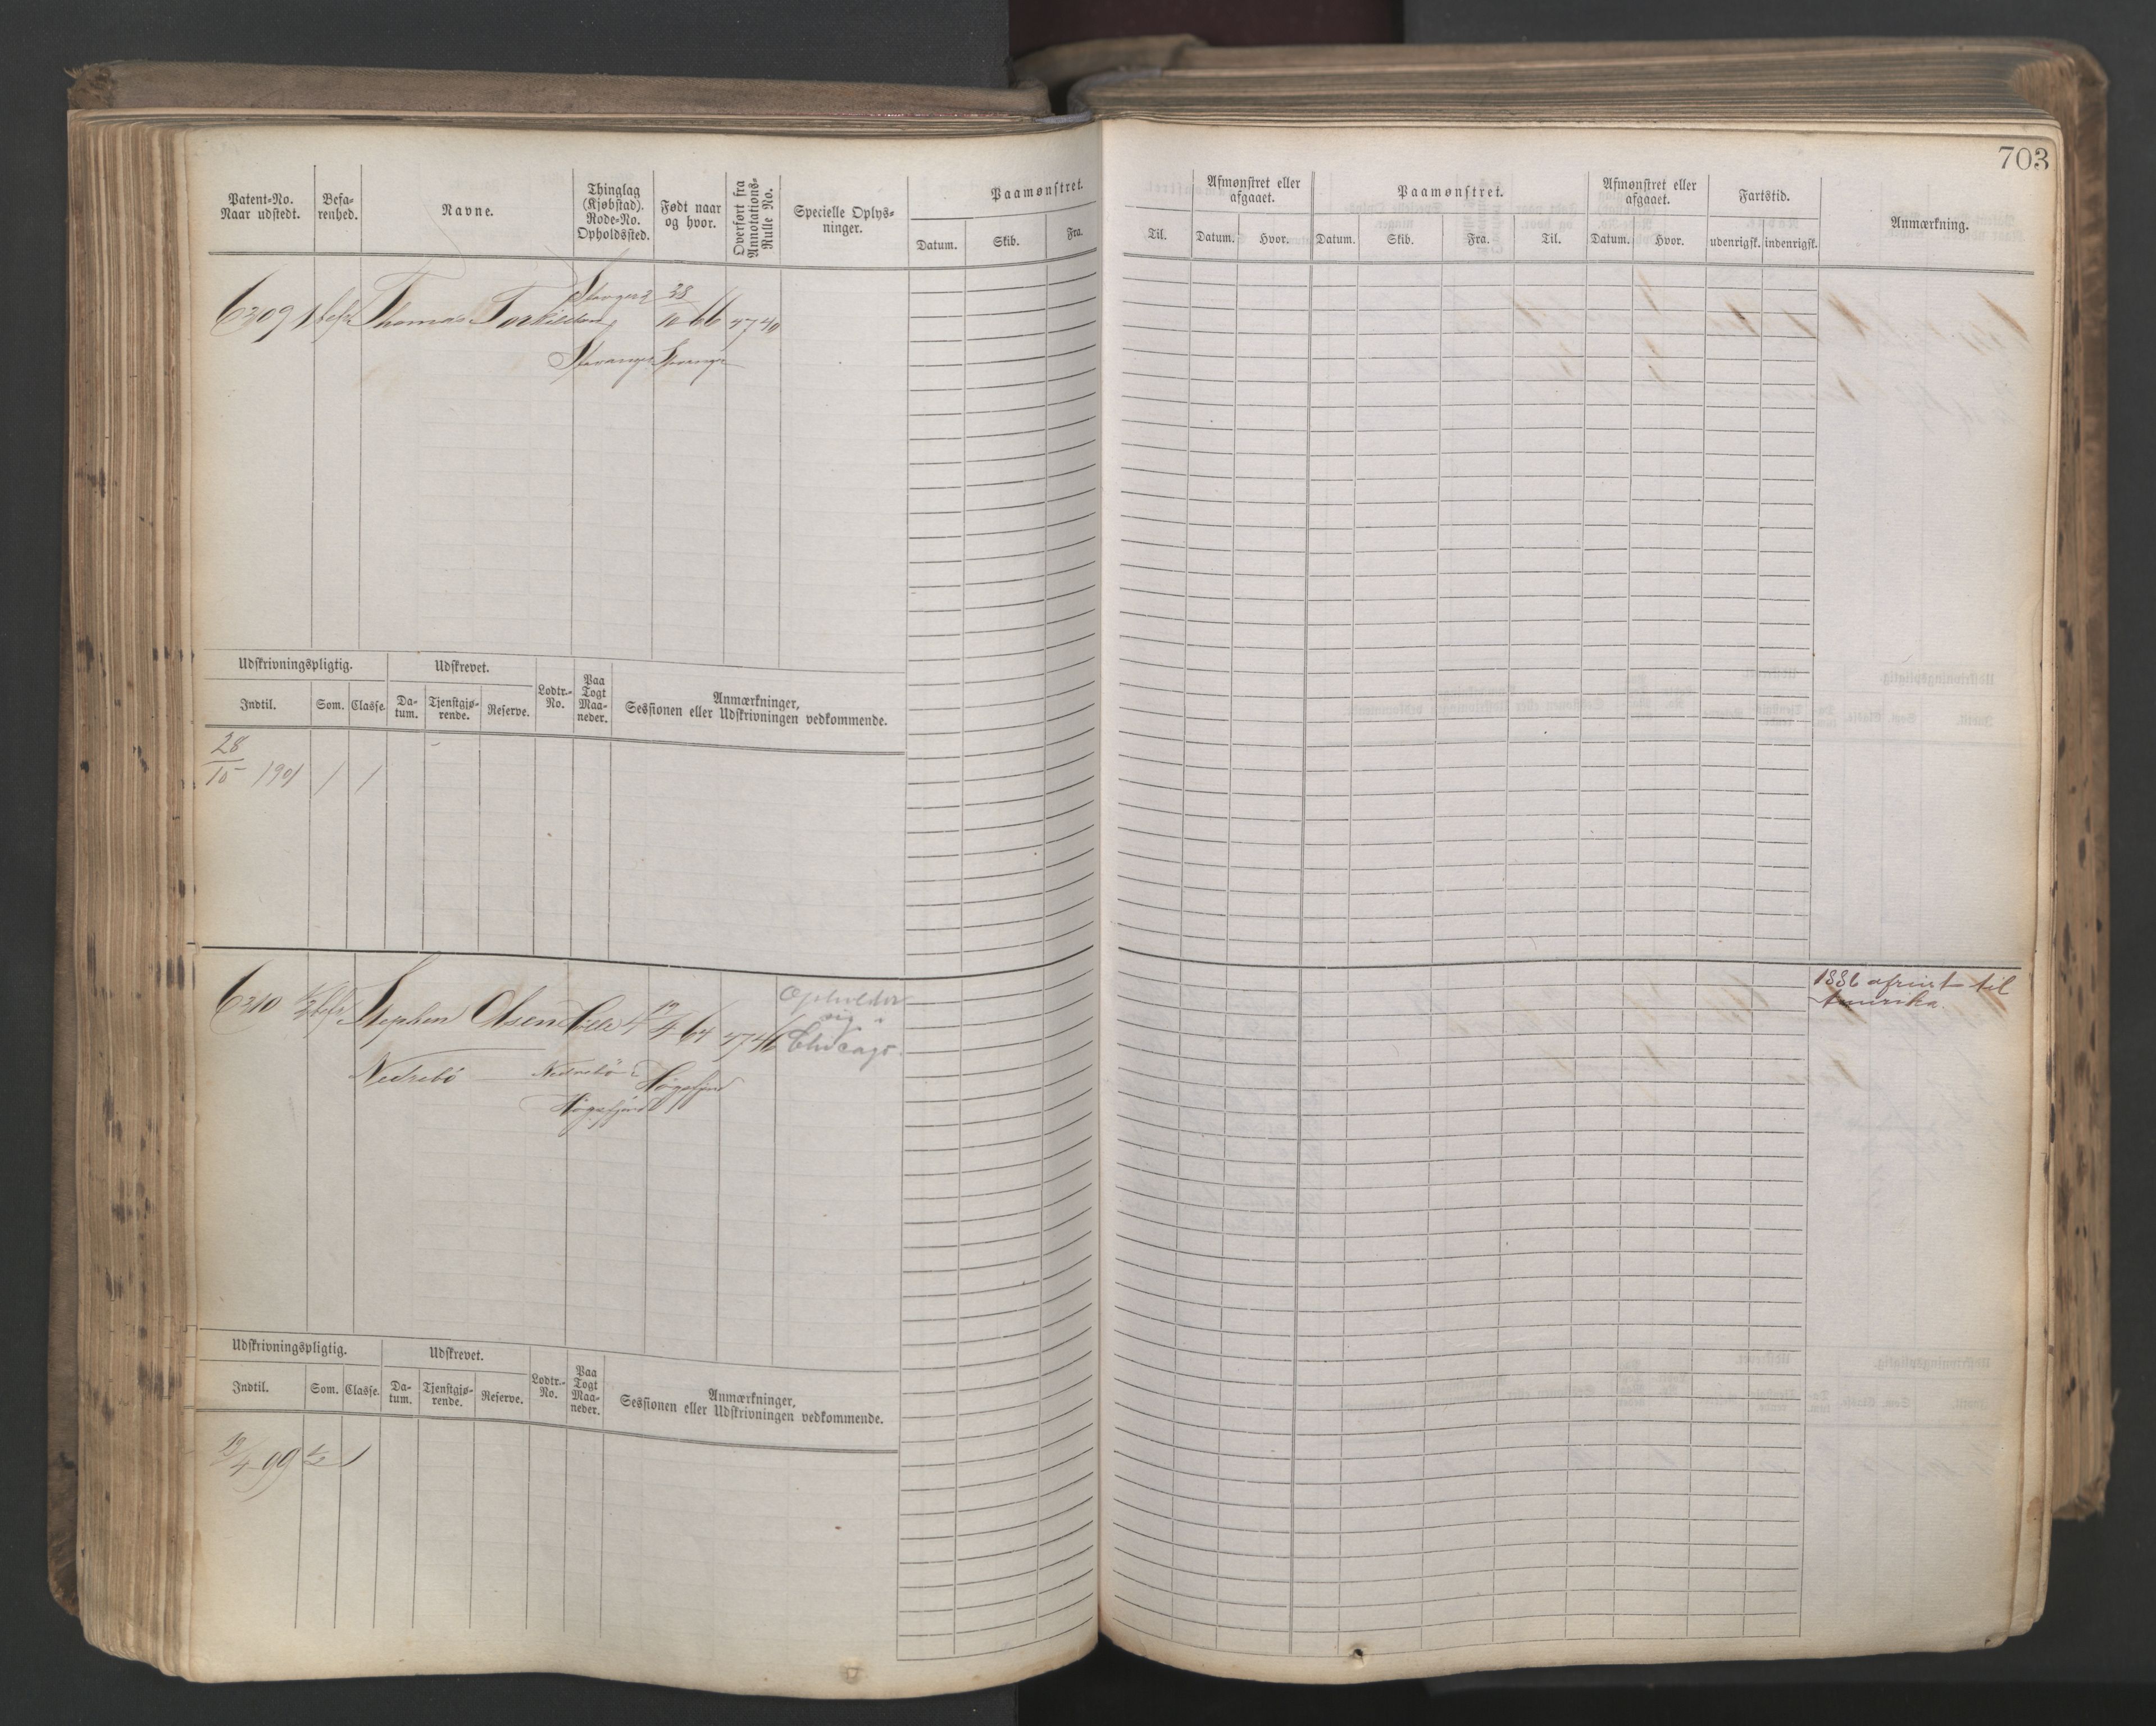 703
Patent-No. Naar udstedt.
Befa-renhed.
Navne.
Thinglag (Kjøbstad). Rode-No. Opholdssted.
Født naar og hvor.
Overført fra Annotations-Rulle No.
Specielle Oplys-ninger.
Paamønstret.
Datum.
Skib.
Fra.
Til.
Afmønstret eller afgaaet.
Datum.
Hvor.
Paamønstret.
Datum.
Skib.
Fra.
Til.
Afmønstret eller afgaaet.
Datum.
Hvor.
Fartstid.
udenrigsk.
indenrigsk.
Anmærkning.
6209 1 Thomas Torkildsen 28/10 66 4740
Stavanger Stavanger
Udskrivningspligtig.
Udskrevet.
Lodtr.-No.
Paa Togt Maa-neder.
Anmærkninger, Sessionen eller Udskrivningen vedkommende.
Indtil.
Som.
Classe.
Da-tum.
Tjenstgjø-rende.
Reserve.
28/10 1901 1 1
6210 Stephen Olsen 4 19/4 64 4746
Opholder sig i Chicago.
1886 afreist til Amerika.
Nedrebö Nedrebö i Høgsfjord
Høgsfjord
Udskrivningspligtig.
Udskrevet.
Lodtr.-No.
Paa Togt Maa-neder.
Anmærkninger, Sessionen eller Udskrivningen vedkommende.
Indtil.
Som.
Classe.
Da-tum.
Tjenstgjø-rende.
Reserve.
19/4 99 1/2 1